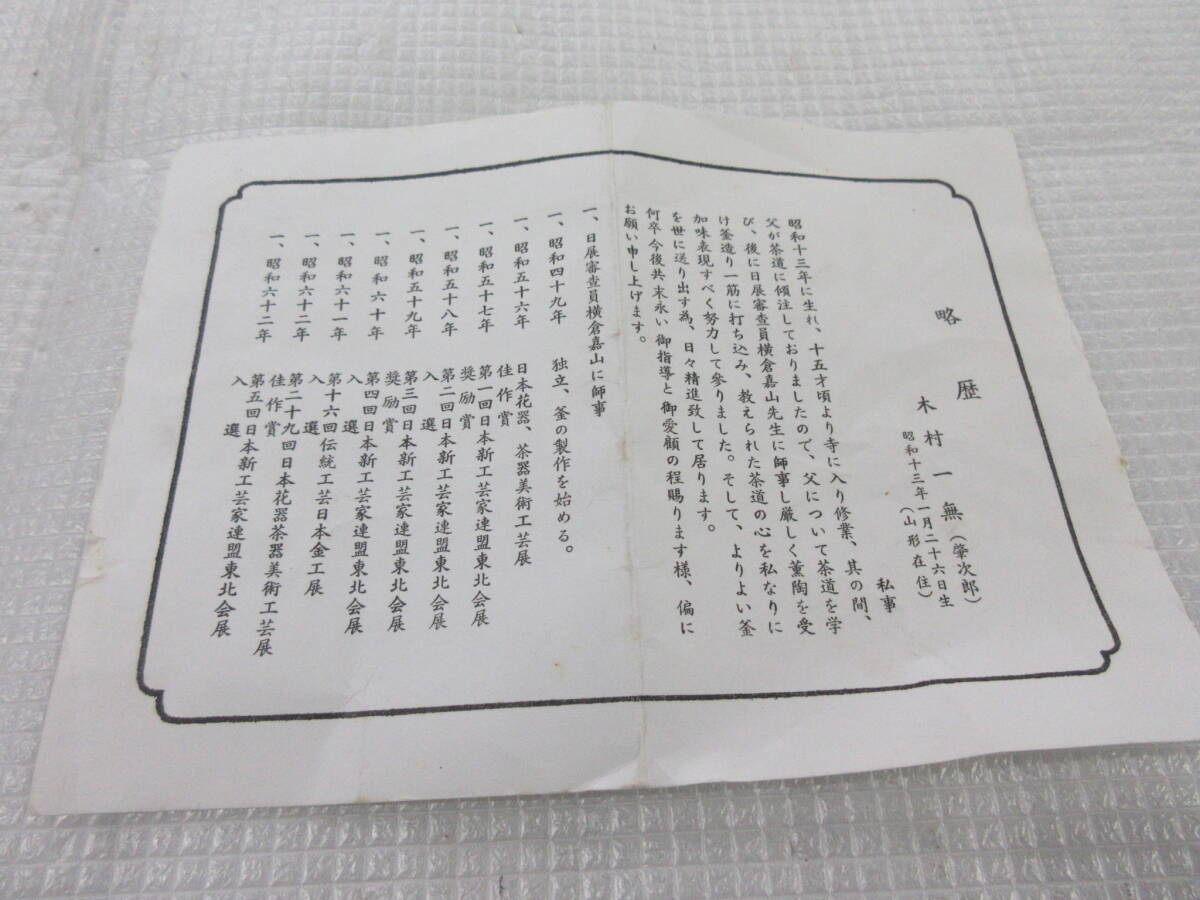 略歴
木村一無（肇次郎）
昭和十三年一月二十六日生
（山形在住）
私事
昭和十三年に生れ、十五才頃より寺に入り修業、其の間、
父が茶道に傾注しておりましたので、父について茶道を学
び、後に日展審査員横倉嘉山先生に師事し厳しく薫陶を受
け釜造り一筋に打ち込み、教えられた茶道の心を私なりに
加味表現すべく努力して参りました。そして、よりよい釜
を世に送り出す為、日々精進致して居ります。
何卒今後共末永い御指導と御愛顧の程賜ります様、偏に
お願い申し上げます。
一、日展審査員横倉嘉山に師事
一、昭和四十九年 独立、釜の製作を始める。
一、昭和五十六年 日本花器、茶器美術工芸展
佳作賞
一、昭和五十七年 第一回日本新工芸家連盟東北会展
奨励賞
一、昭和五十八年 第二回日本新工芸家連盟東北会展
入選
一、昭和五十九年 第三回日本新工芸家連盟東北会展
奨励賞
一、昭和六十年 第四回日本新工芸家連盟東北会展
入選
一、昭和六十一年 第十六回伝統工芸日本金工展
入選
一、昭和六十二年 第二十九回日本花器茶器美術工芸展
佳作賞
一、昭和六十二年 第五回日本新工芸家連盟東北会展
入選